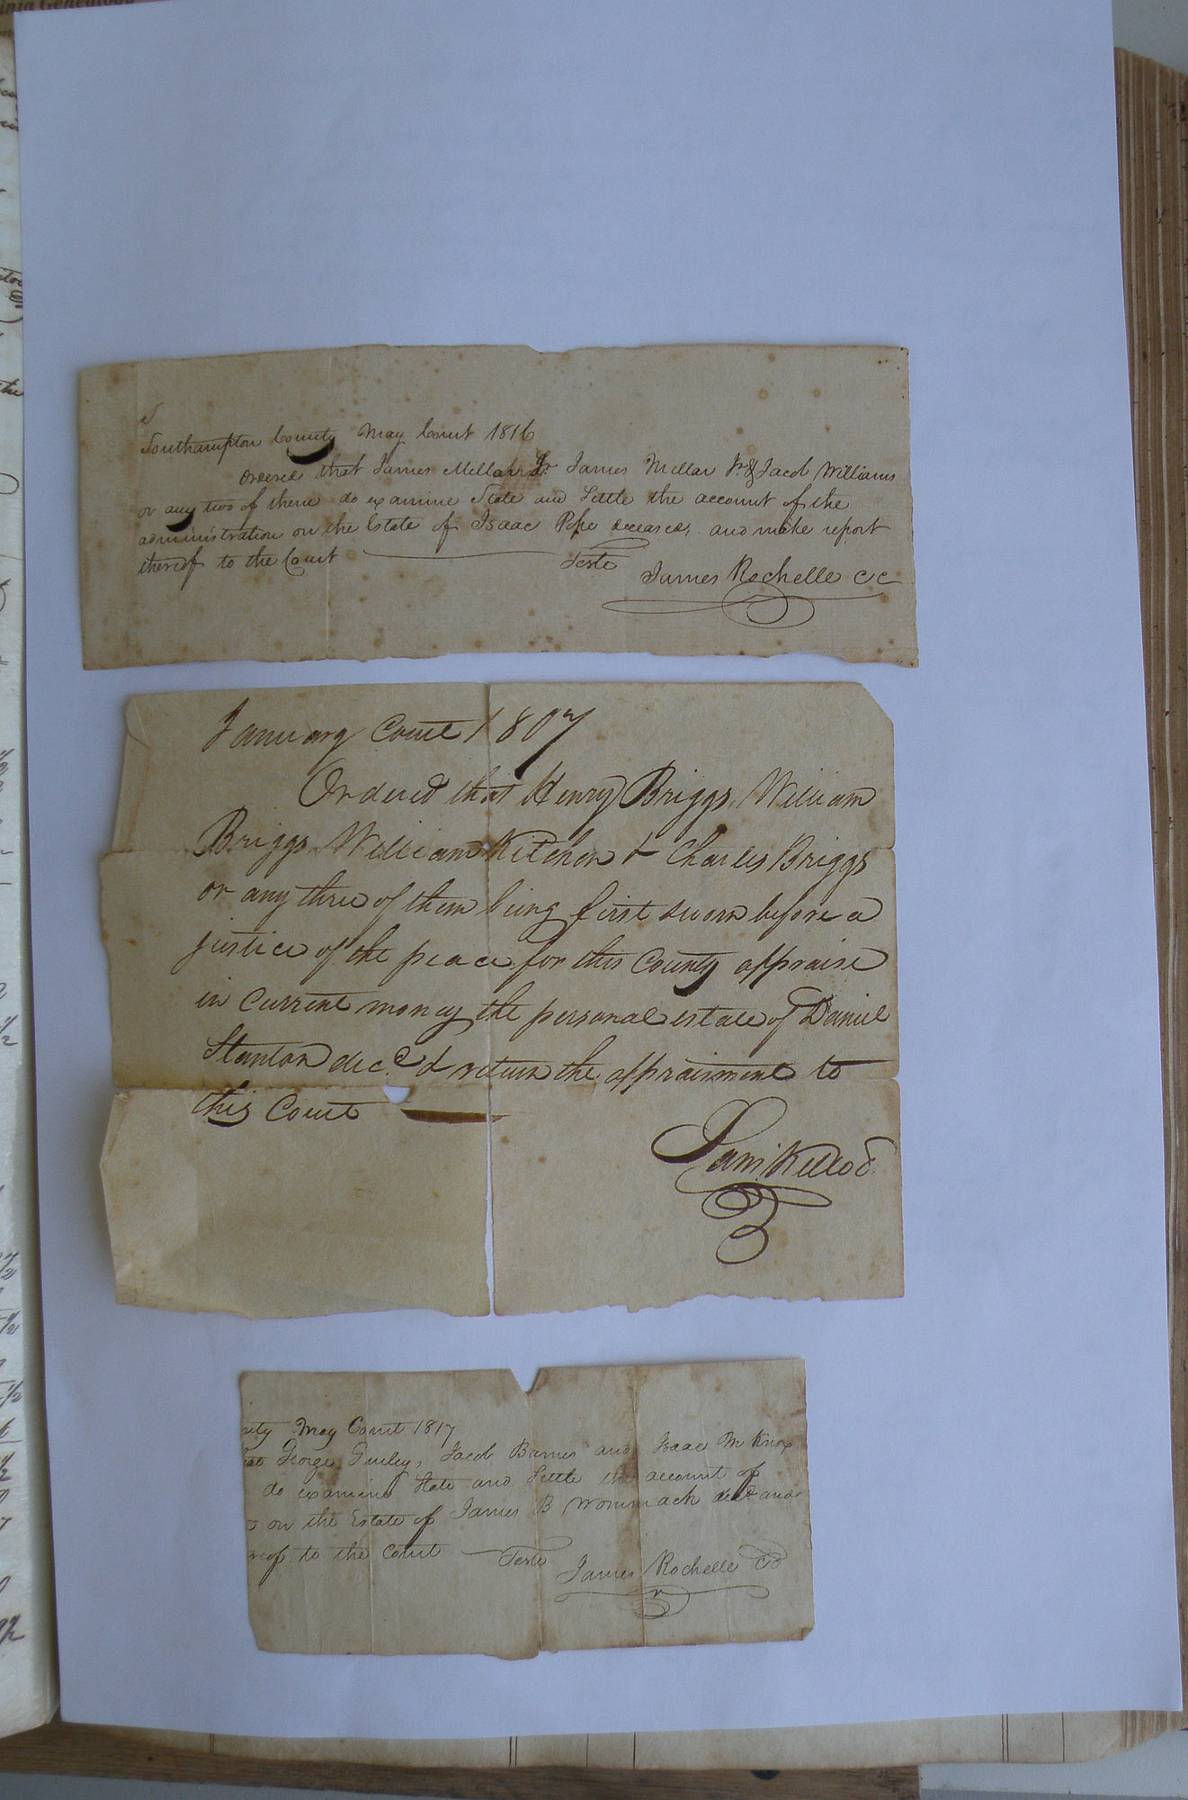 Southampton County May Court 1816
Ordered that James Millar Sr. James Millar Jr. & Jacob Williams
or any two of them do examine State and Settle the account of the
administration on the Estate of Isaac Pope deceased, and make report
thereof to the Court Teste
James Rochelle CC
January Court 1807
Ordered that Henry Briggs, William
Briggs William Kitchen & Charles Briggs
or any three of them being first sworn before a
justice of the peace for this County appraise
in Current money the personal estate of Daniel
Stanton decd. & return the appraisment to
this Court
Sam Kello
nty May Court 1817
George Gurley, Jacob Barnes and Isaac
do examine State and Settle the account of
on the Estate of James B Wommack decd and
reof to the Court Teste
James Rochelle